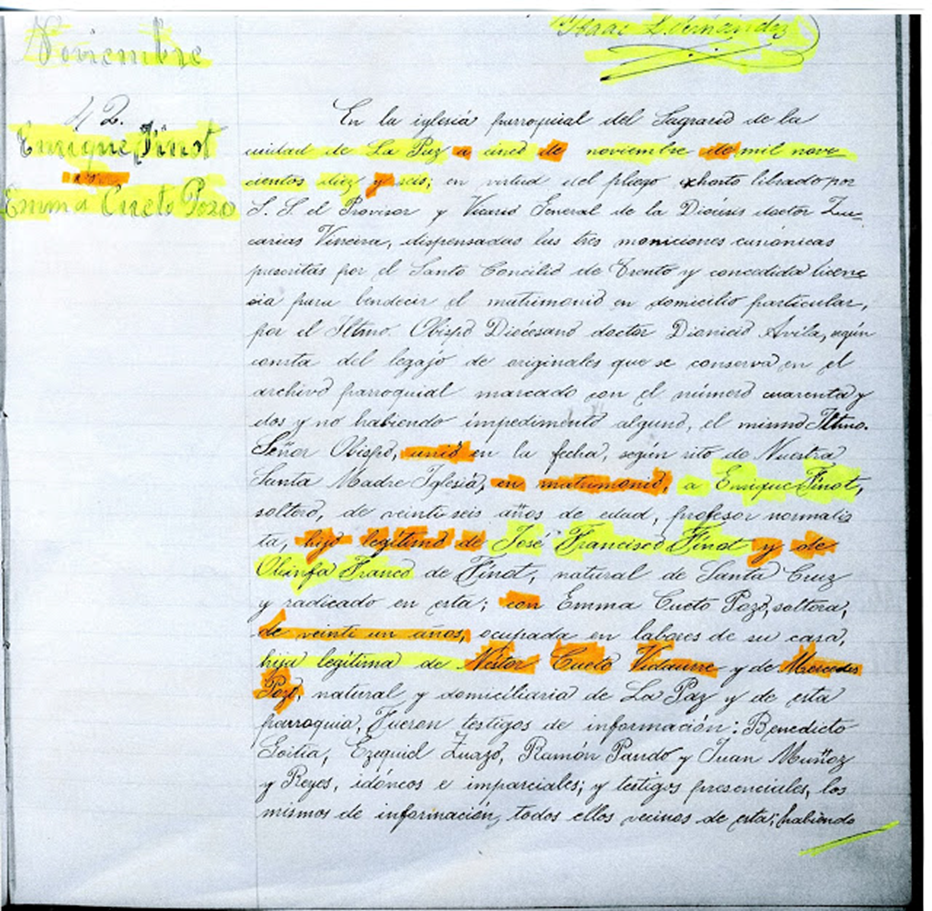 Isaac L. Fernández
Noviembre
42.
Enrique Finot
con
Emma Cueto Pozo
En la iglesia parroquial del Sagrario de la
ciudad de La Paz a cinco de noviembre de mil nove
cientos diez y seis; en virtud del pliego exhorto librado por
S. S. el Provisor y Vicario General de la Diócesis doctor Za-
carías Viscira, dispensadas las tres moniciones canónicas
prescritas por el Santo Concilio de Trento y concedida licen-
cia para bendecir el matrimonio en domicilio particular,
por el Iltmo. Obispo Diocesano doctor Dionicio Avila, según
consta del legajo de originales que se conserva en el
archivo parroquial marcado con el número cuarenta y
dos y no habiendo impedimento alguno, el mismo Iltmo.
Señor Obispo, unió en la fecha, según rito de Nuestra
Santa Madre Iglesia, en matrimonio, a Enrique Finot,
soltero, de veinte seis años de edad, profesor normalis
ta, hijo legítimo de José Francisco Finot y de
Obinfa Franco de Finot, natural de Santa Cruz
y radicado en esta; con Emma Cueto Pozo, soltera,
de veinte un años, ocupada en labores de su casa,
hija legítima de Néstor Cueto Vidaurre y de Mercedes
Pozo, natural y domiciliaria de La Paz y de esta
parroquia. Fueron testigos de información: Benedicto
Goitia, Ezequiel Zuazo, Ramón Pando y Juan Muñoz
y Reyes, idóneos e imparciales; y testigos presenciales, los
mismos de información, todos ellos vecinos de esta; habiendo